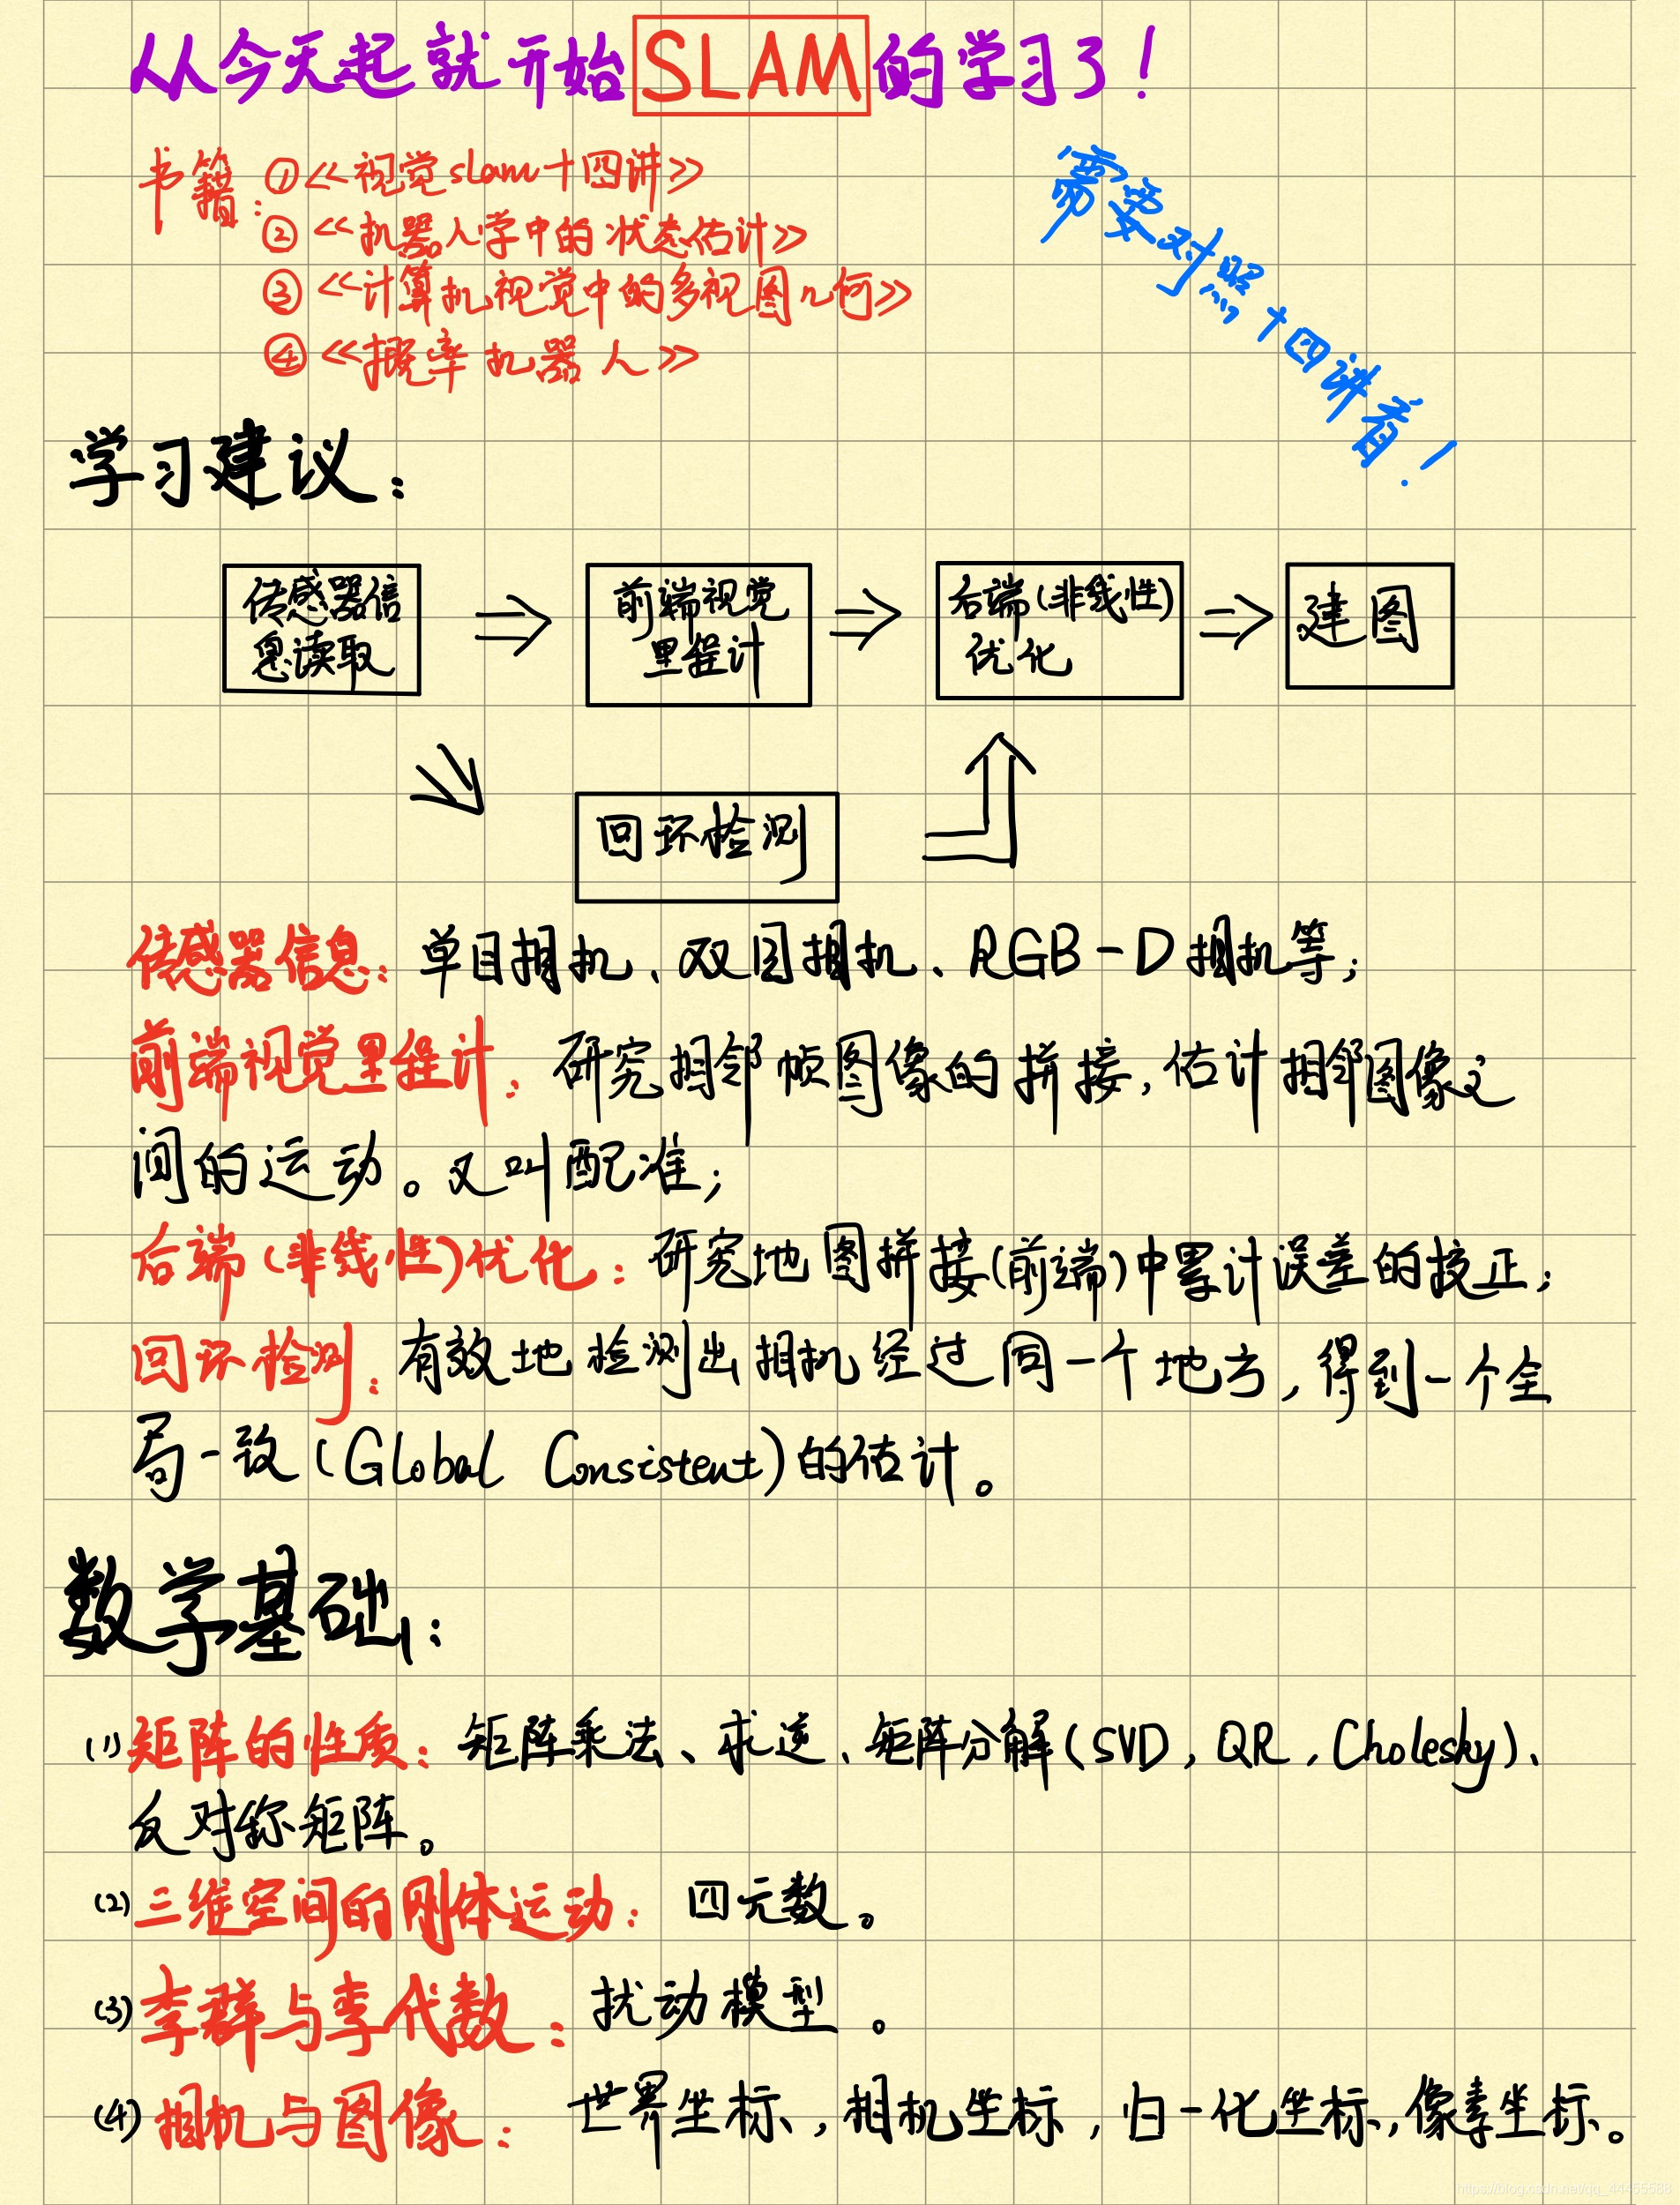 从今天起就开始SLAM的学习了！
书籍：①《视觉slam十四讲》
②《机器人学中的状态估计》
③《计算机视觉中的多视图几何》
④《概率机器人》
需要对照十四讲看！
学习建议：
传感器信
息读取
前端视觉
里程计
后端(非线性)
优化
建图
回环检测
传感器信息：单目相机、双目相机、RGB-D相机等；
前端视觉里程计：研究相邻帧图像的拼接，估计相邻图像之
间的运动。又叫配准；
后端(非线性)优化：研究地图拼接(前端)中累计误差的校正；
回环检测：有效地检测出相机经过同一个地方，得到一个全
局一致(Global Consistent)的估计。
数学基础：
(1)矩阵的性质：矩阵乘法、求逆、矩阵分解(SVD，QR，Cholesky)、
反对称矩阵。
(2)三维空间的刚体运动：四元数。
(3)李群与李代数：扰动模型。
(4)相机与图像：世界坐标，相机坐标，归一化坐标，像素坐标。